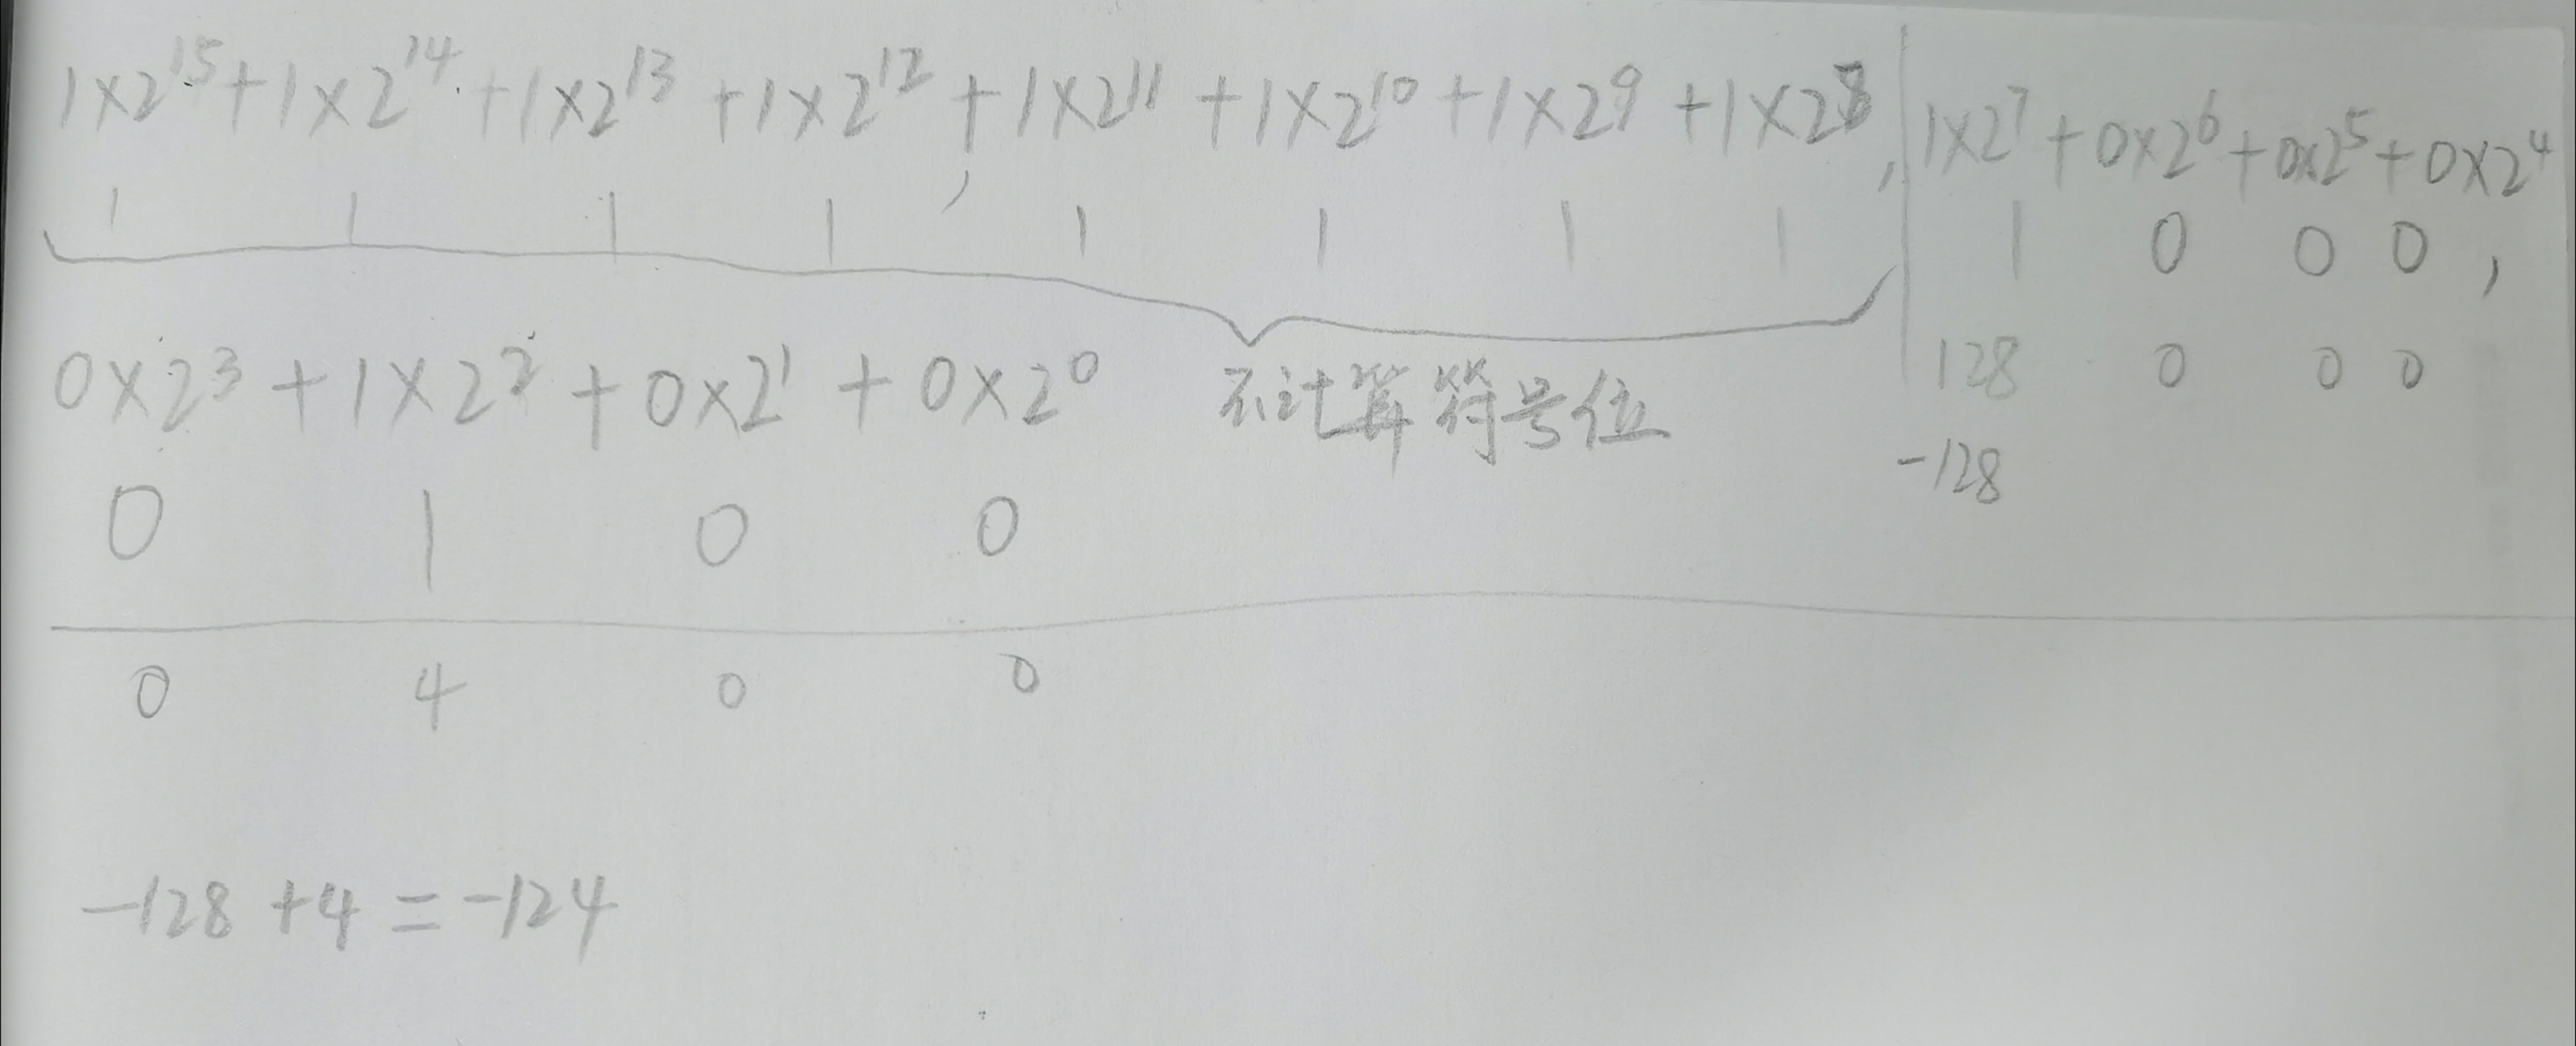 1×2¹⁵+1×2¹⁴+1×2¹³+1×2¹²+1×2¹¹+1×2¹⁰+1×2⁹+1×2⁸,1×2⁷+0×2⁶+0×2⁵+0×2⁴
1 1 1 1 , 1 1 1 1 1 0 0 0 ,
128 0 0 0
-128
0×2³+1×2²+0×2¹+0×2⁰ 不计算符号位
0 1 0 0
0 4 0 0
-128+4=-124